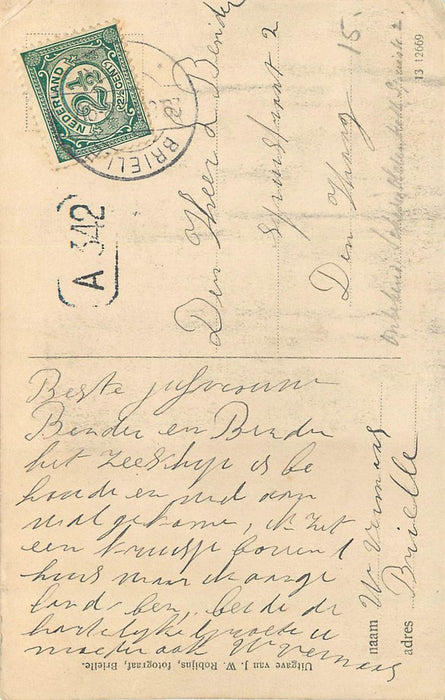 NEDERLAND
2½
CENT
BRIELLE
A 342
Den Heer L Bender
straat 2
Den Haag
15.
13 12669
Beste jufvrouw
Bender en Bender
het zeeschip is be
houden en wel aan
wal gekomen, ik zet
een kruisje boven t
huis waar ik aange
land ben, beide de
hartelijke groete u
moeder ook W Vermaas
naam W Vermaas
adres Brielle
Uitgave van J. W. Robijns, fotograaf, Brielle.